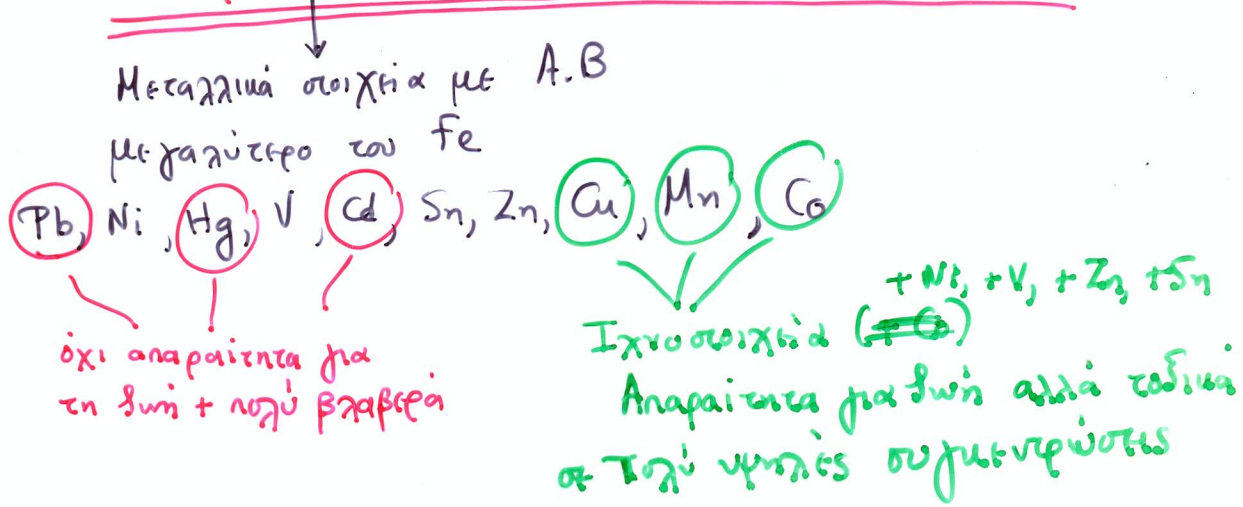 Μεταλλικά στοιχεία με Α.Β
μεγαλύτερο του Fe
Pb, Ni, Hg, V, Cd, Sn, Zn, Cu, Mn, Co
+ Ni, + V, + Zn, + Sn
όχι απαραίτητα για
τη ζωή + πολύ βλαβερά
Ιχνοστοιχεία ( )
Απαραίτητα για ζωή αλλά τοξικά
σε πολύ υψηλές συγκεντρώσεις